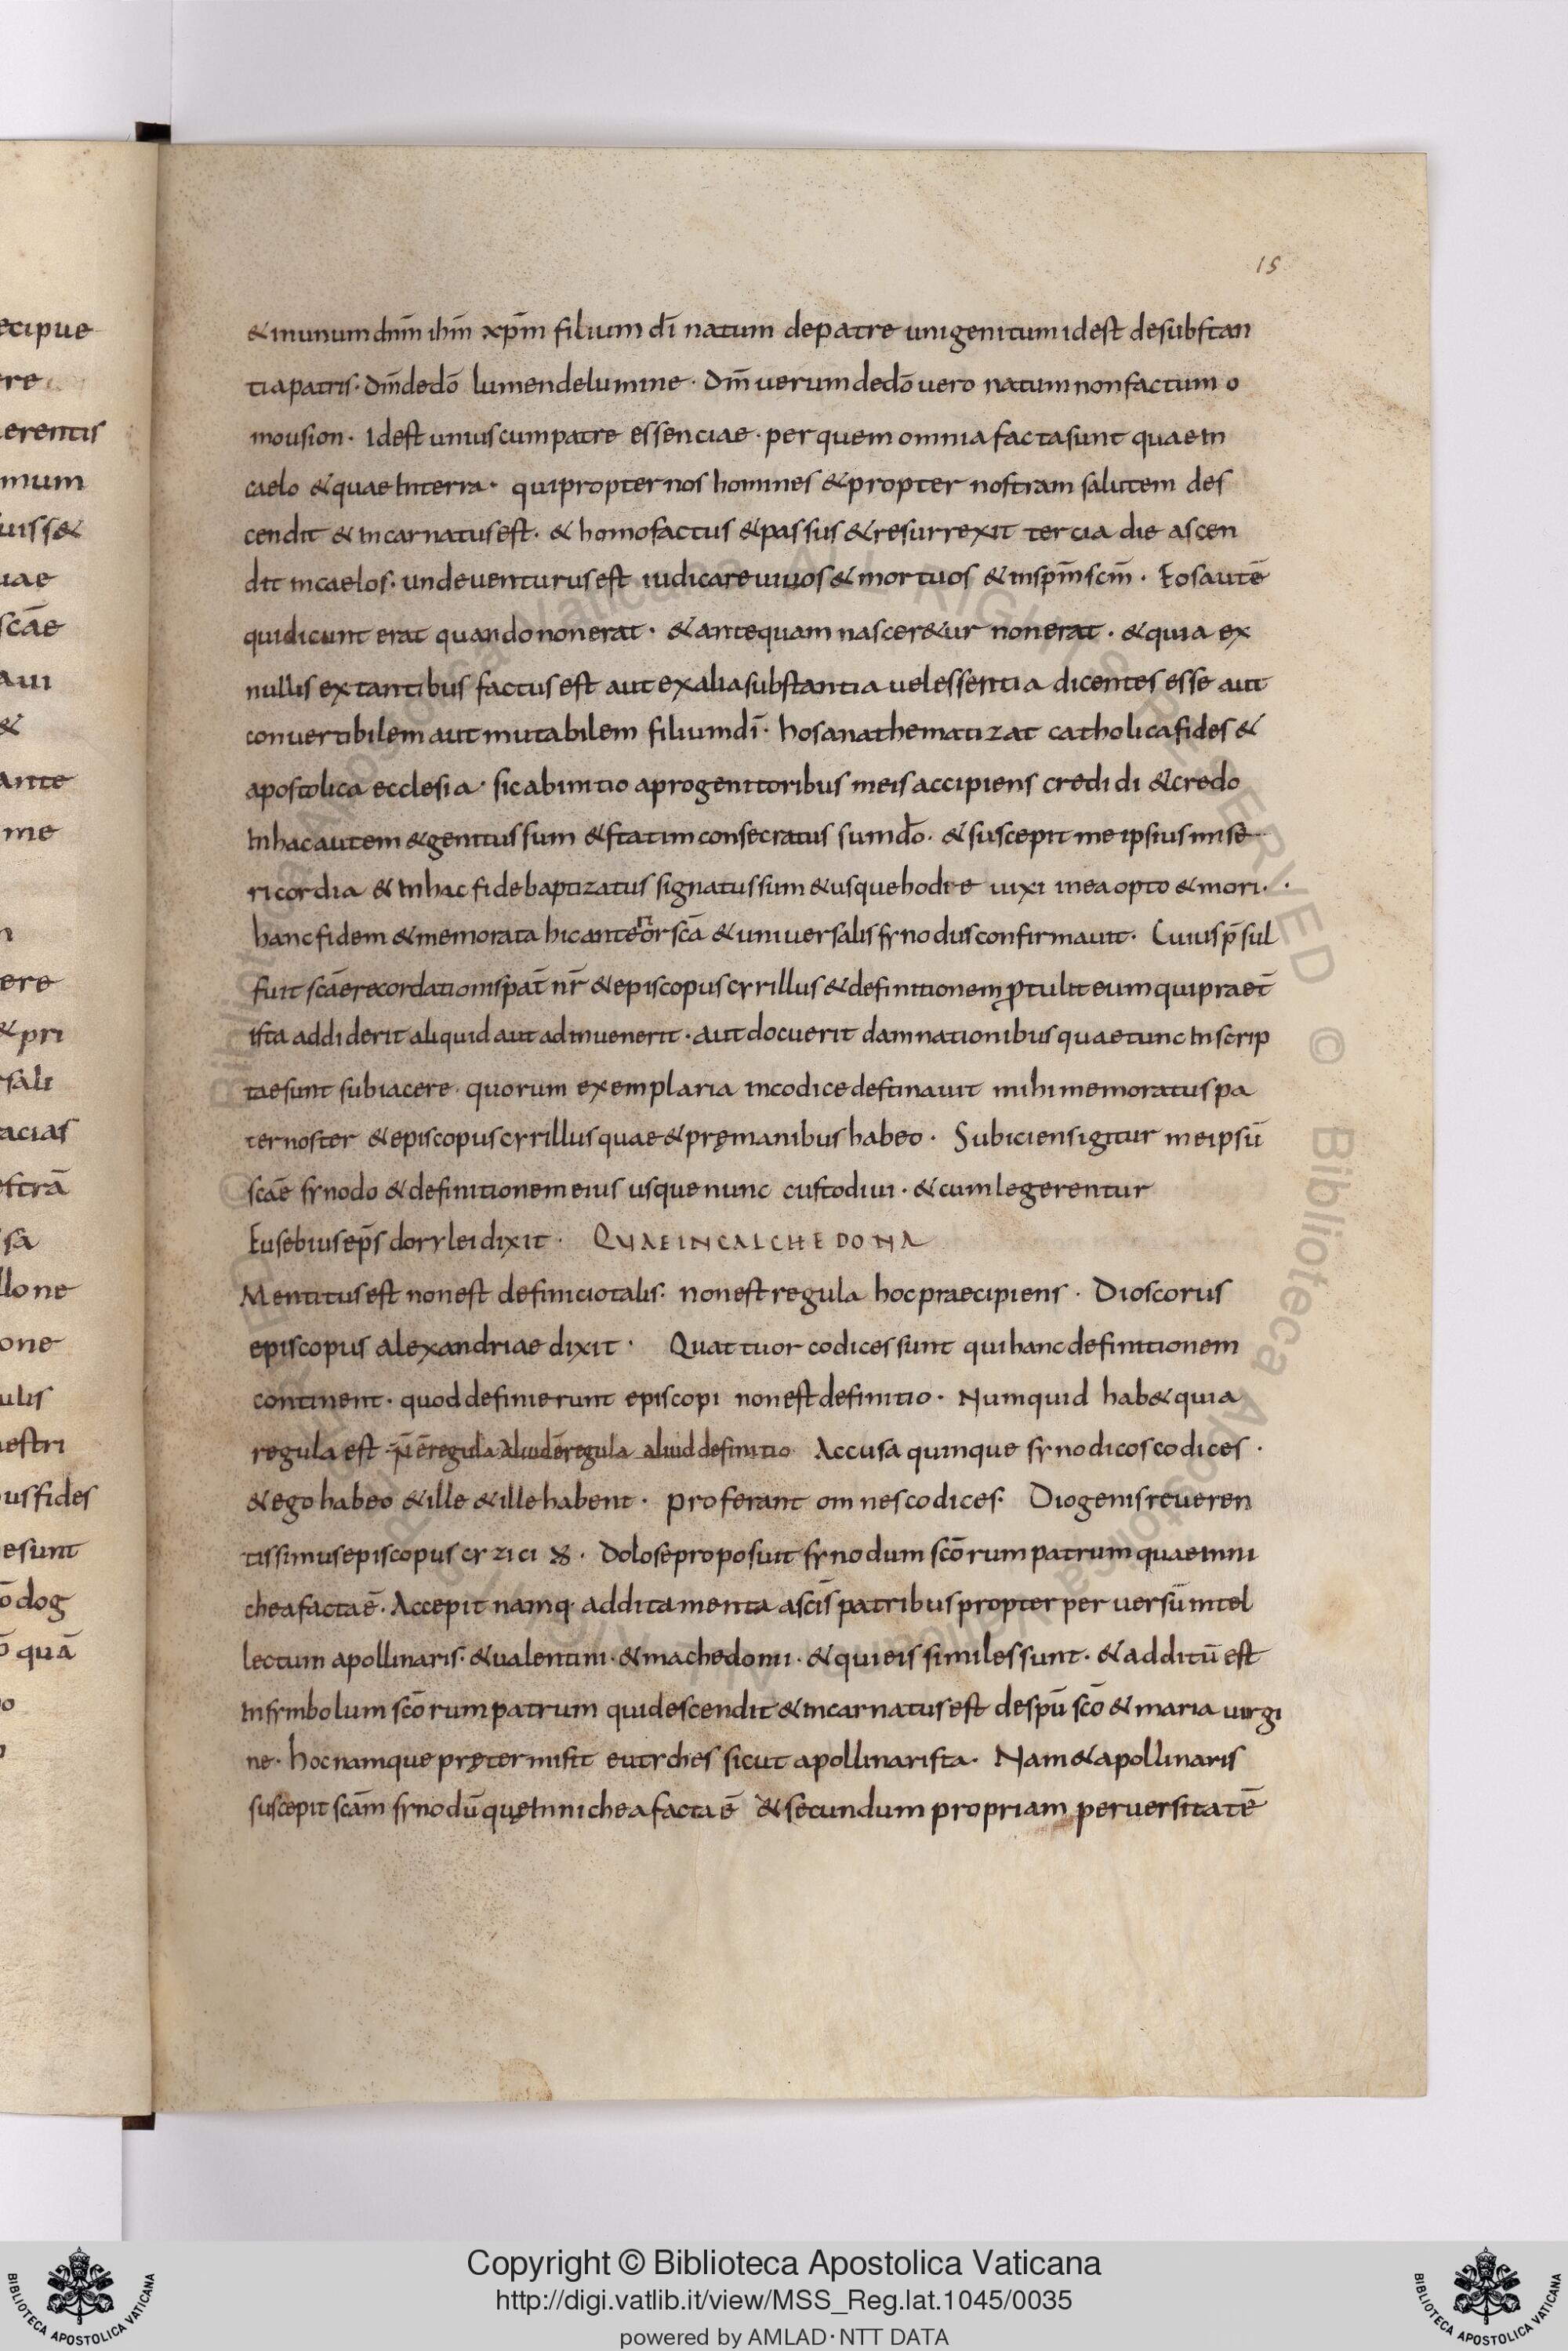 15
& in unum dnm̄ ihm̄ xpm̄ filium dī natum de patre unigenitum id est de substan
tia patris· dm̄ de dō lumen de lumine· dm̄ uerum de dō uero natum non factum o
mousion· id est unius cum patre essenciae· per quem omnia facta sunt quae in
caelo & quae in terra· qui propter nos homines & propter nostram salutem des
cendit & incarnatus est· & homo factus & passus & resurrexit tercia die ascen
dit in caelos· unde uenturus est iudicare uiuos & mortuos & in spm̄ scm̄· Eos autē
qui dicunt erat quando non erat· & antequam nascer&ur non erat· & quia ex
nullis extantibus factus est aut ex alia substantia uel essentia dicentes esse aut
conuertibilem aut mutabilem filium dī· hos anathematizat catholica fides &
apostolica ecclesia· sic ab initio a progenitoribus meis accipiens credidi & credo
In hac autem & genitus sum & statim consecratus sum dō· & suscepit me ipsius mise
ricordia & in hac fide baptizatus signatus sum & usque hodie uixi in ea opto & mori·
hanc fidem & memorata hic ante scā & uniuersalis synodus confirmauit· Cuius p̄sul
fuit scāe recordationis pat̄ nr̄ & episcopus cyrillus & definitionem ꝓtulit eum qui praet̄
ista addiderit aliquid aut adinuenerit· aut docuerit damnationibus quae tunc inscrip
tae sunt subiacere· quorum exemplaria in codice destinauit mihi memoratus pa
ter noster & episcopus cyrillus quae & prę manibus habeo· Subiciens igitur me ipsū
scāe synodo & definitionem eius usque nunc custodiui· & cum legerentur
Eusebius ep̄s dorylei dixit· QUAE IN CALCHEDONA
Mentitus est non est definicio talis· non est regula hoc praecipiens· Dioscorus
episcopus alexandriae dixit· Quattuor codices sunt qui hanc definitionem
continent· quod definierunt episcopi non est definitio· Numquid hab& quia
regula est ē regula aliud ē regula aliud definitio Accusa quinque synodicos codices·
& ego habeo & ille & ille habent· proferant omnes codices· Diogenis reueren
tissimus episcopus cyzici · Dolose proposuit synodum scōrum patrum quae in ni
chea facta ē· Accepit namq· additamenta a scīs patribus propter peruersū intel
lectum apollinaris· & ualentini· & machedonii· & qui eis similes sunt· & additū est
In symbolum scōrum patrum qui descendit & incarnatus est de spū scō & maria uirgi
ne· hoc namque prętermisit eutyches sicut apollinarista· Nam & apollinaris
suscepit scām synodū quę in nichea facta ē & secundum propriam peruersitatē
ecipue
ere
erentis
mum
uiss&
uae
scāe
aui
&
ante
me
ere
& pri
sali
acias
estrā
sā
llone
one
ulis
uestri
us fides
esunt
ō dog
quā
Copyright © Biblioteca Apostolica Vaticana
http://digi.vatlib.it/view/MSS_Reg.lat.1045/0035
powered by AMLAD·NTT DATA
BIBLIOTECA APOSTOLICA VATICANA
BIBLIOTECA APOSTOLICA VATICANA